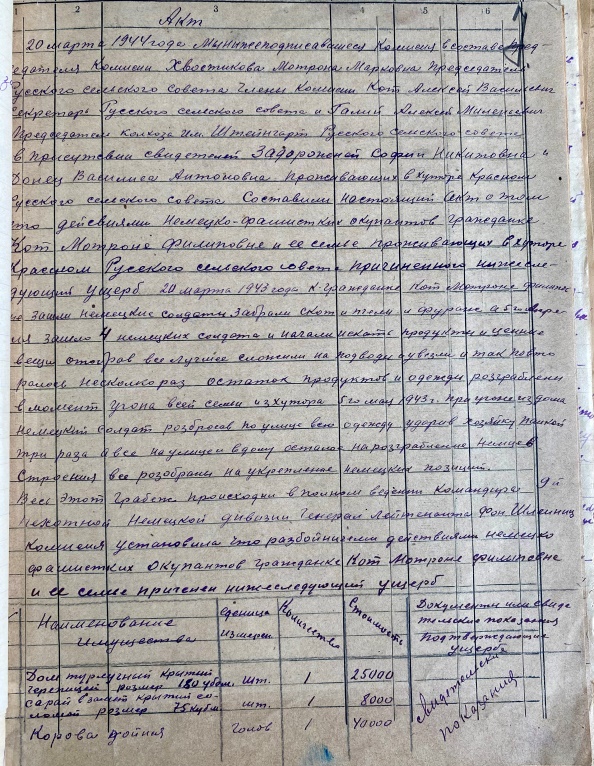 1 2 3 4 5 6
Акт
20 марта 1944 года Мы нижеподписавшиеся Комисия в составе пред-
седателя Комисии Хвостикова Мотрона Марковна Председателя
Русского сельского совета Члены Комисии Кот Алексей Васильевич
Секретарь Русского сельского совета и Галий Алексей
Председатель Колхоза Им. Штейнгарт Русского Сельского совета
в присутствии свидетелей Задорожней Софии Никитовна и
Донец Василиса Антоновна Проживающих в хуторе Красном
Русского сельского совета Составили настоящий Акт о том
что действиями Немецко-фашистких окупантов гражданке
Кот Мотроне Филиповне и ее семье проживающих в хуторе
Красном Русского сельского совета причиненного нижесле-
дующий ущерб. 20 марта 1943 года к гражданке Кот Мотроне филипов-
не зашли Немецкие солдаты Забрали скот и птеы и фураж а 5го Апре-
ля зашло 4 немецких солдата и начали искать продукты и ценные
вещи отобрав все лучшее сложили на подводы и увезли а так повто
ралось несколко раз остаток продуктов и одежды розграблены
в момент угона всей семьи из хутора 5го мая 1943 г. при угоне из дома
немецкий солдат розбросав по улице всю одежду ударив хозяйку палкой
три раза а все на улице и в дому осталось на розграбление Немцев
Строения все розобраны на укрепление немецких позиций.
Весь этот грабеж происходил в полном ведении Командира 9й
пехотной Немецкой дивизии Генерал Лейтенанта Фон Шлейниц
Комисия установила что разбойничьими действиями немецко
фашистких Окупантов гражданке Кот Мотроне филиповне
и ее семье причинен нижеследующий ущерб
Наименование Имущества
еденица измерен.
Количество
Стоимость
Документы или свиде
тельские показания
подтверждающие
ущерб
Дом турлучный крытый
черепицей розмер 180 кубм. шт. 1 25000
сарай взамет крытый со-
ломой розмер 75 кубм. шт. 1 8000
Корова дойная голов 1 40000
Свидетельские
показания